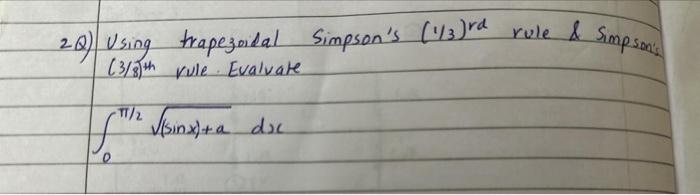 2Q) Using trapezoidal Simpson's (1/3)rd rule & Simpson's
(3/8)th rule. Evaluate
∫₀^π/2 √(sinx)+a dx